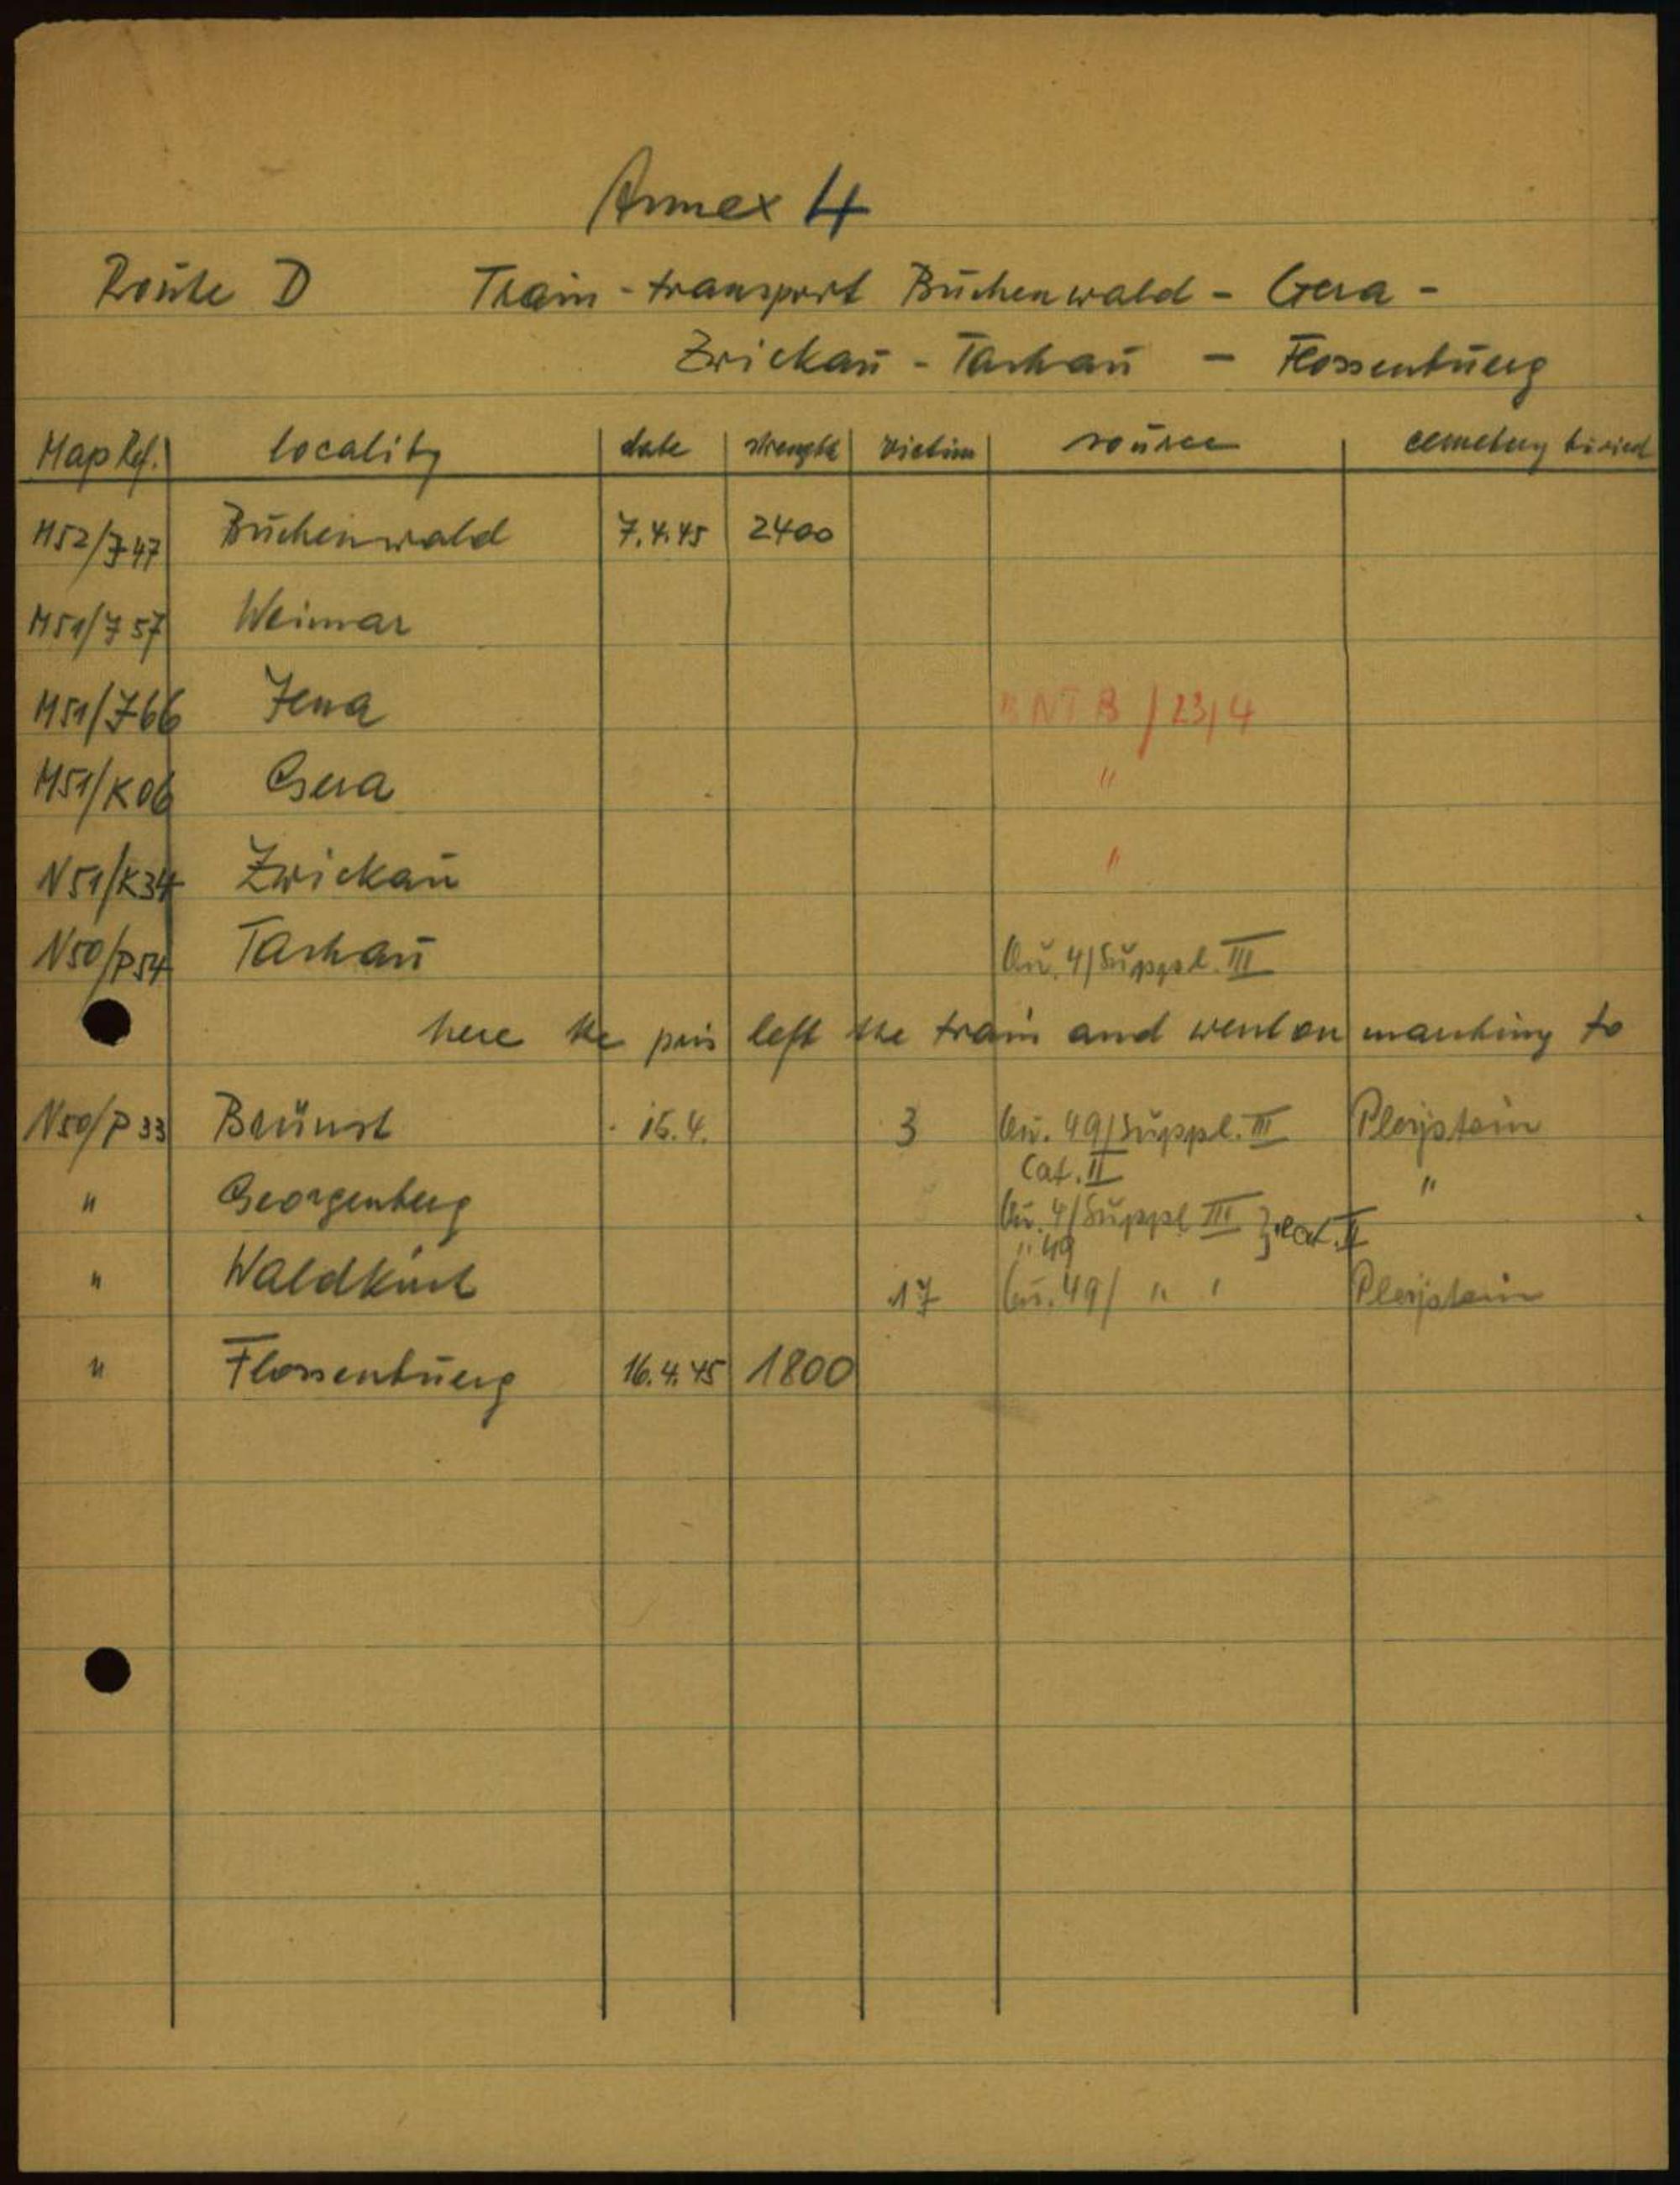 Annex 4
Route D Train-transport Buchenwald - Gera -
Zwickau - Tachau - Flossenbuerg
Map Ref. locality date strenght victim source cemetery buried
M52/J47 Buchenwald 7.4.45 2400
M51/J57 Weimar
M51/J66 Jena NTB/23/4
M51/K06 Gera "
N51/K34 Zwickau "
N50/P54 Tachau Qu. 4/Suppl. III
here the pris left the train and went on marching to
N50/P33 Brünst 15.4. 3 Qu. 49/Suppl. III Pleystein
Cat. II
" Georgenberg Qu. 4/Suppl III } cat. II "
" 49
" Waldkirch 17 Qu. 49/ " " Pleystein
" Flossenbuerg 16.4.45 1800